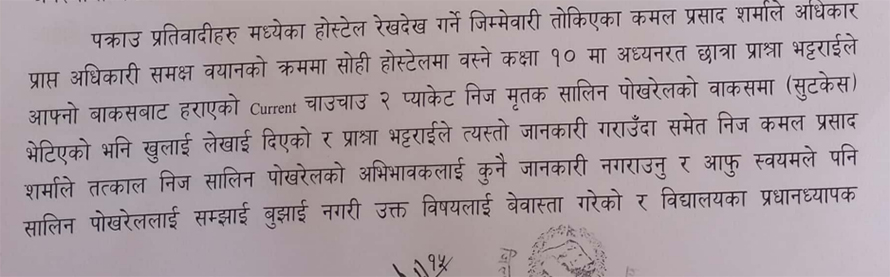 पक्राउ प्रतिवादीहरु मध्येका होस्टेल रेखदेख गर्ने जिम्मेवारी तोकिएका कमल प्रसाद शर्माले अधिकार
प्राप्त अधिकारी समक्ष वयानको क्रममा सोही होस्टेलमा वस्ने कक्षा १० मा अध्यनरत छात्रा प्राश्ना भट्टराईले
आफ्नो बाकसबाट हराएको Current चाउचाउ २ प्याकेट निज मृतक सालिन पोखरेलको वाकसमा (सुटकेस)
भेटिएको भनि खुलाई लेखाई दिएको र प्राश्ना भट्टराईले त्यस्तो जानकारी गराउँदा समेत निज कमल प्रसाद
शर्माले तत्काल निज सालिन पोखरेलको अभिभावकलाई कुनै जानकारी नगराउनु र आफु स्वयमले पनि
सालिन पोखरेललाई सम्झाई बुझाई नगरी उक्त विषयलाई बेवास्ता गरेको र विद्यालयका प्रधानध्यापक